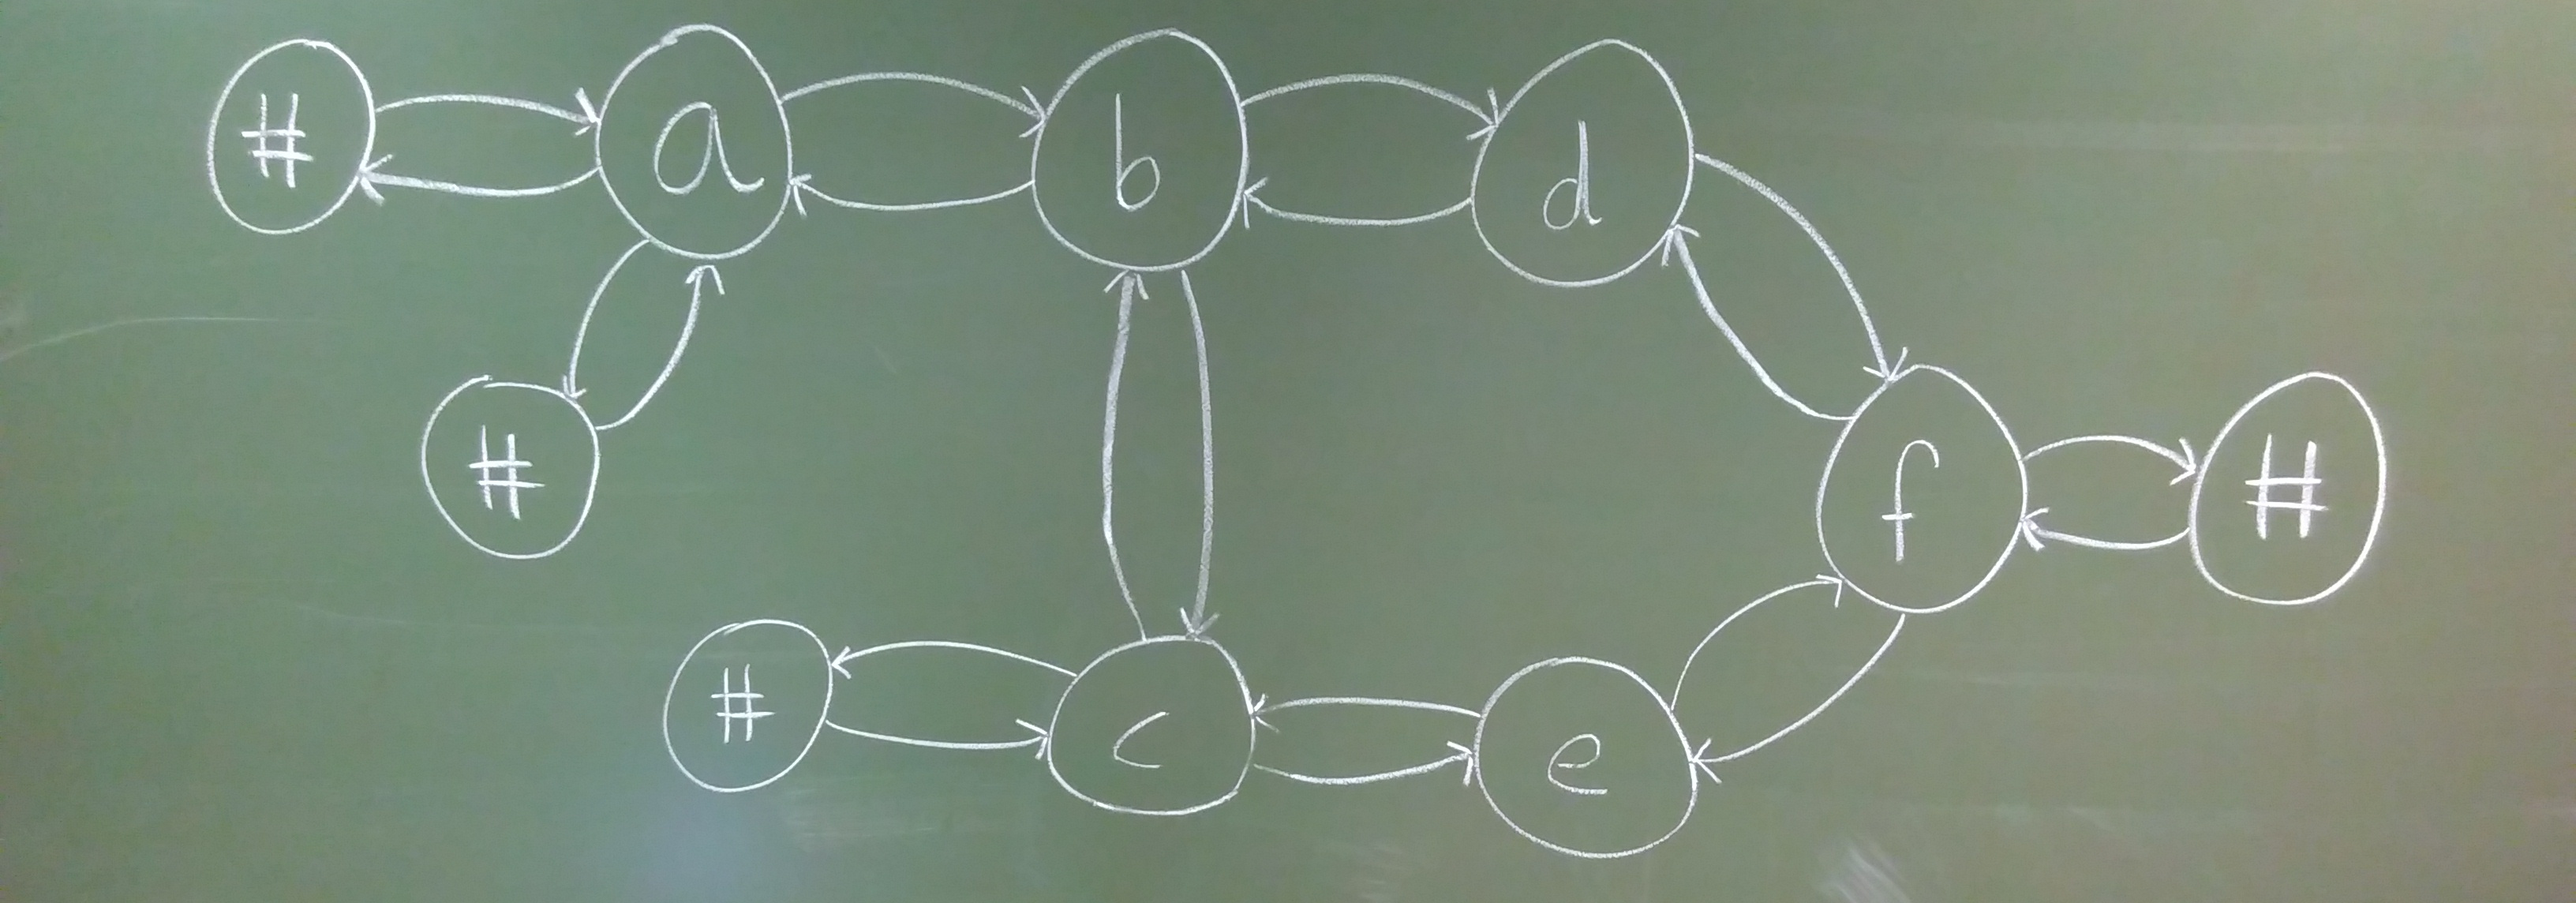 # a b d
# f #
# c e